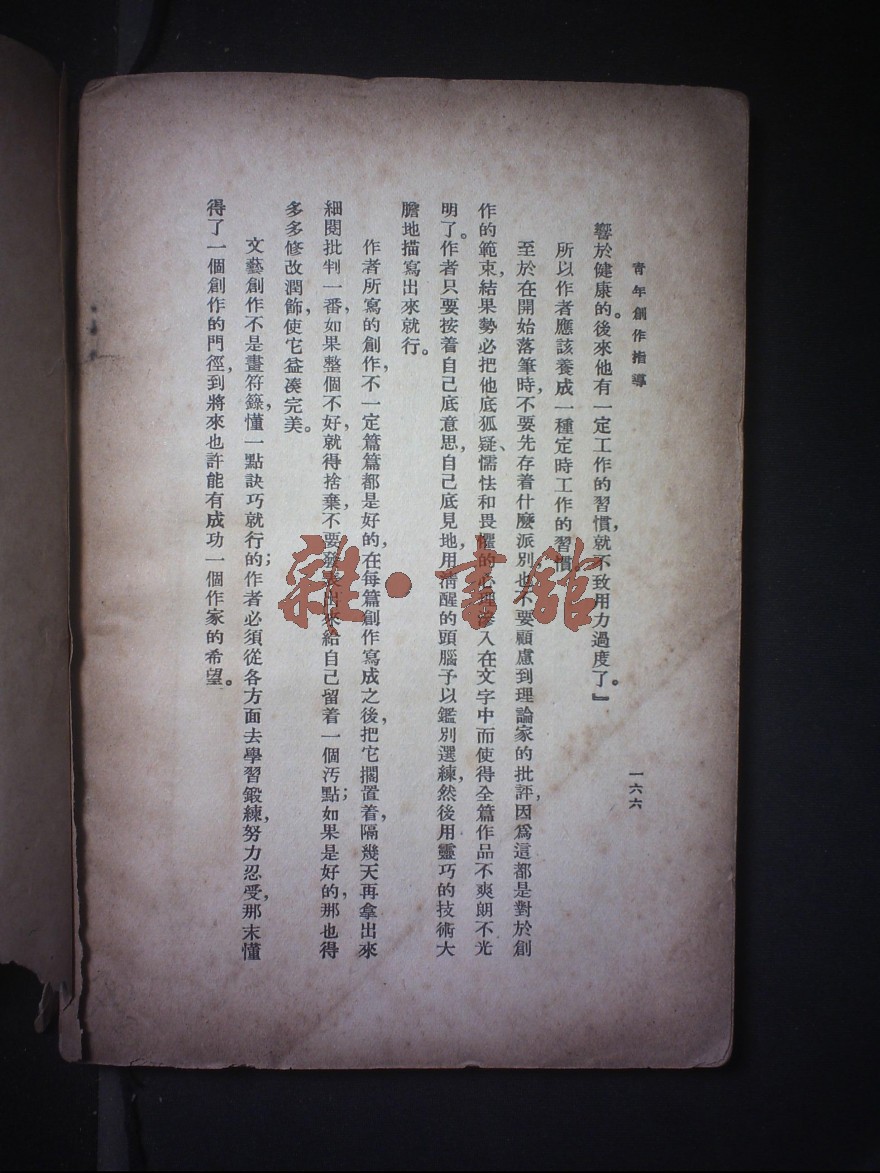 青年創作指導
一六六
響於健康的。後來他有一定工作的習慣，就不致用力過度了。』
所以作者應該養成一種定時工作的習慣
至於在開始落筆時，不要先存着什麼派別，也不要顧慮到理論家的批評，因爲這都是對於創
作的範束，結果勢必把他底狐疑、懦怯和畏懼的心理滲入在文字中而使得全篇作品不爽朗不光
明了。作者只要按着自己底意思，自己底見地，用淸醒的頭腦子以鑑別選練，然後用靈巧的技術大
膽地描寫出來就行。
作者所寫的創作，不一定篇篇都是好的，在每篇創作寫成之後，把它擱置着，隔幾天再拿出來
細閱批判一番，如果整個不好，就得捨棄，不要發表出來給自己留着一個汚點；如果是好的，那也得
多多修改潤飾，使它益凑完美。
文藝創作不是畫符籙，懂一點訣巧就行的；作者必須從各方面去學習鍛練，努力忍受，那末懂
得了一個創作的門徑，到將來也許能有成功一個作家的希望。
雜·書館